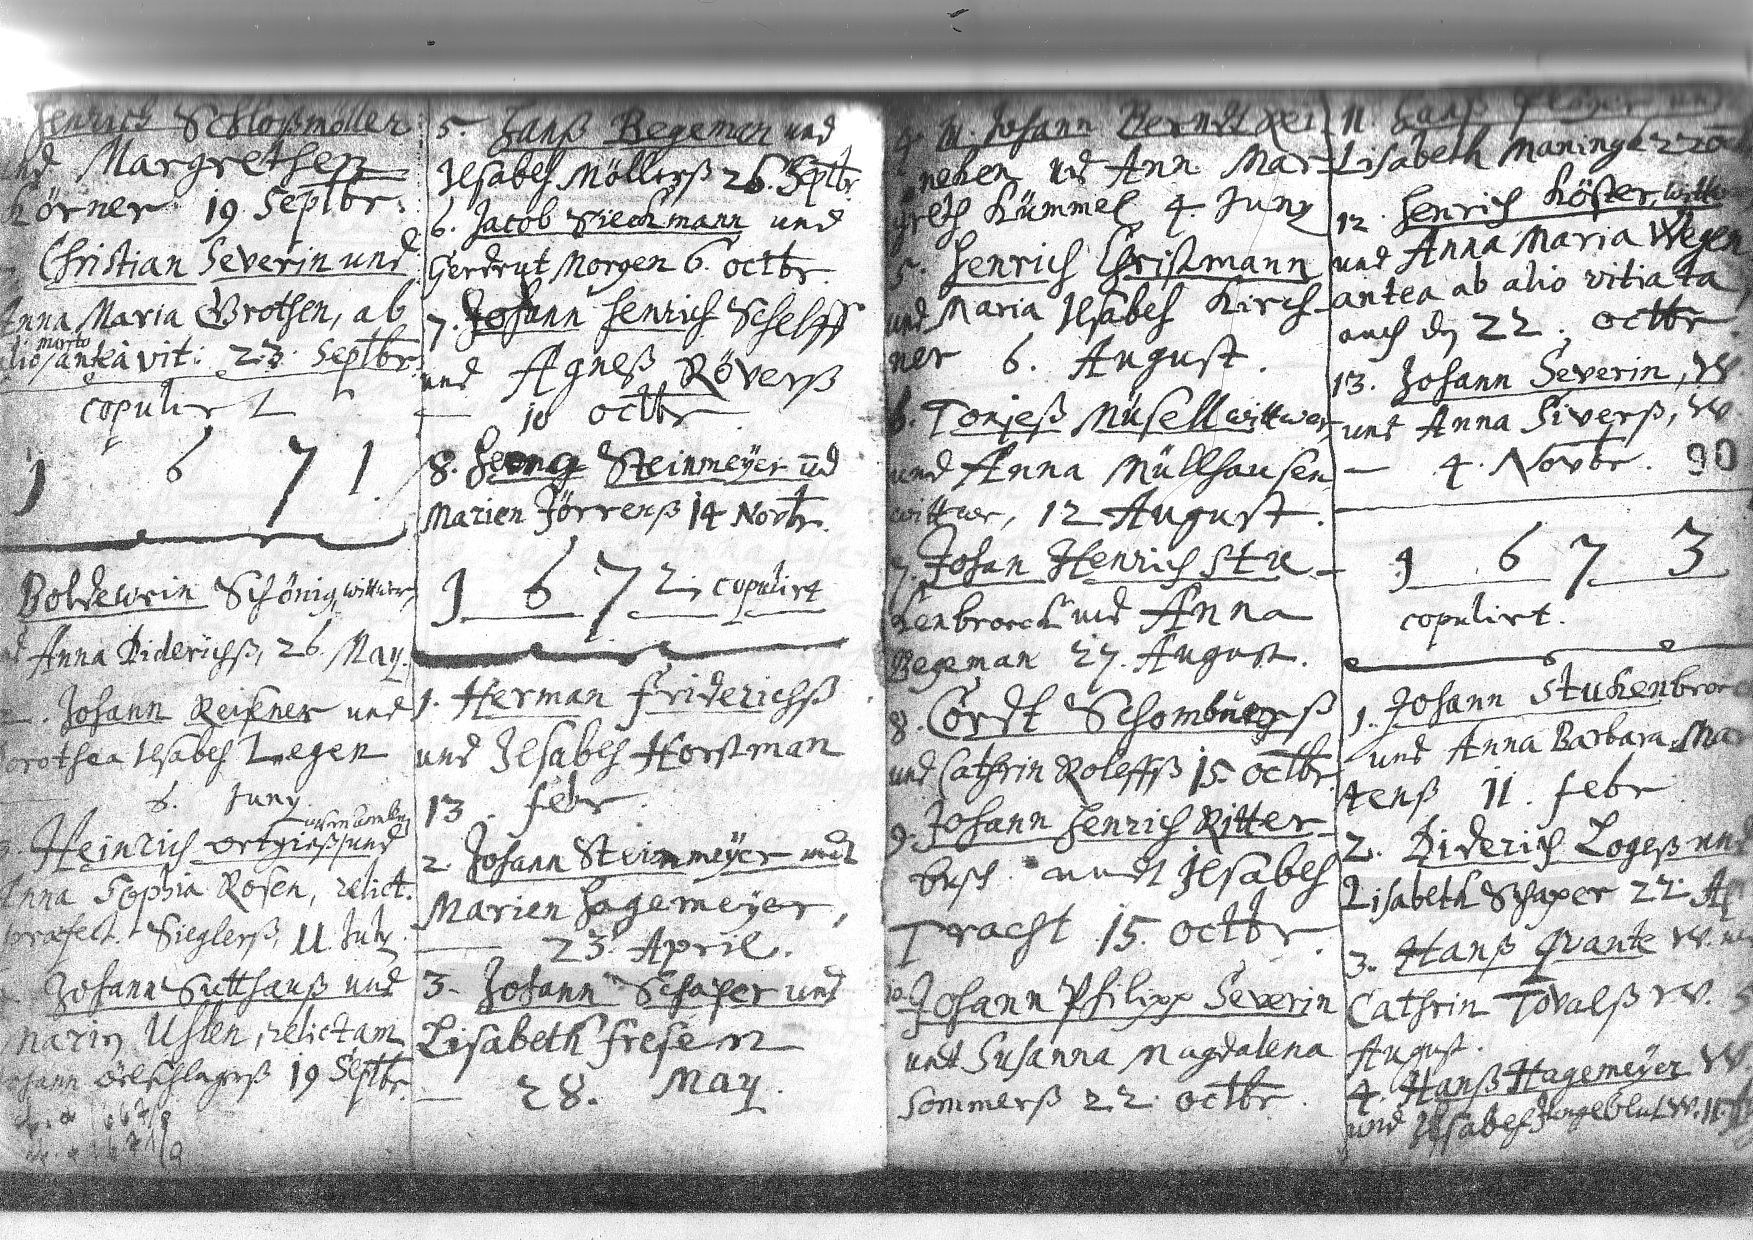 Henrich Schloßmöller
und Margrethen
Körner. 19 Septbr.
Christian Severin und
Anna Maria Grothen, ab
alio marito antea vit: 23. Septbr.
copulirt
1 6 7 1.
Boldewin Schönig, wittwer,
und Anna Diderichß, 26. May.
2. Johann Reißner und
Dorothea Ilsabeh Legen
6. Juny.
3. Heinrich Ortgieß und
Anna Sophia Rosen, relict.
præfect. Sieglerß, 11 July
Johann Sutthauß und
Marin Uhlen, relictam
Johann Öelschlagerß 19 Septbr.
5. Hanß Begeman und
Ilsabeh Möllerß 26. Septbr.
6. Jacob Sieckmann und
Gerdrut Morgen 6. octbr.
7. Johann Henrich Schelff
und Agneß Röverß
10 octbr
8. Steinmeÿer ud
Marien Jörrenß 14 Novbr.
1 6 7 2, copulirt
1. Herman Friderichß
und Ilsabeh Horstman
13. febr.
2. Johann Steinmeÿer undt
Marien Hagemeÿer,
23. April.
3. Johann Schaper und
Lisabeth Fresen
28. May.
4. Johann Berndt Rei-
neken und Ann Mar-
greth Kümmel 4. Juny
5. Henrich Christmann
und Maria Ilsabeh Kirch-
ner 6. August.
6. Tonjeß Müsell wittwer,
und Anna Müllhausen
wittwe, 12 August.
7. Johan Henrich Stu-
kenbroeck und Anna
Begeman 27. August.
8. Cordt Schomburgß
und Cathrin Roleffß 15. octbr.
9. Johann Henrich Ritter-
busch undt Ilsabeh
Tracht 15. octbr.
10. Johann Philipp Severin
undt Susanna Magdalena
Sommerß 22. octbr.
11. Hanß und
Lisabeth Maninga 22 oct
12. Henrich Köster, wittwer
und Anna Maria Wegen
antea ab alio vitiata
auch dn 22. octbr.
13. Johann Severin, W
und Anna Siverß, W.
4. Novbr. 90
1 6 7 3
copulirt.
1. Johann Stukenbroeck
und Anna Barbara Mar-
tenß 11. febr
2. Diderich Logeß und
Lisabeth Schaper 22. Ap
3. Hanß Quante W. und
Cathrin Tovalß W. 5
August.
4. Hanß Hagemeÿer W.
und Ilsabeh Jungeblut W. 11.